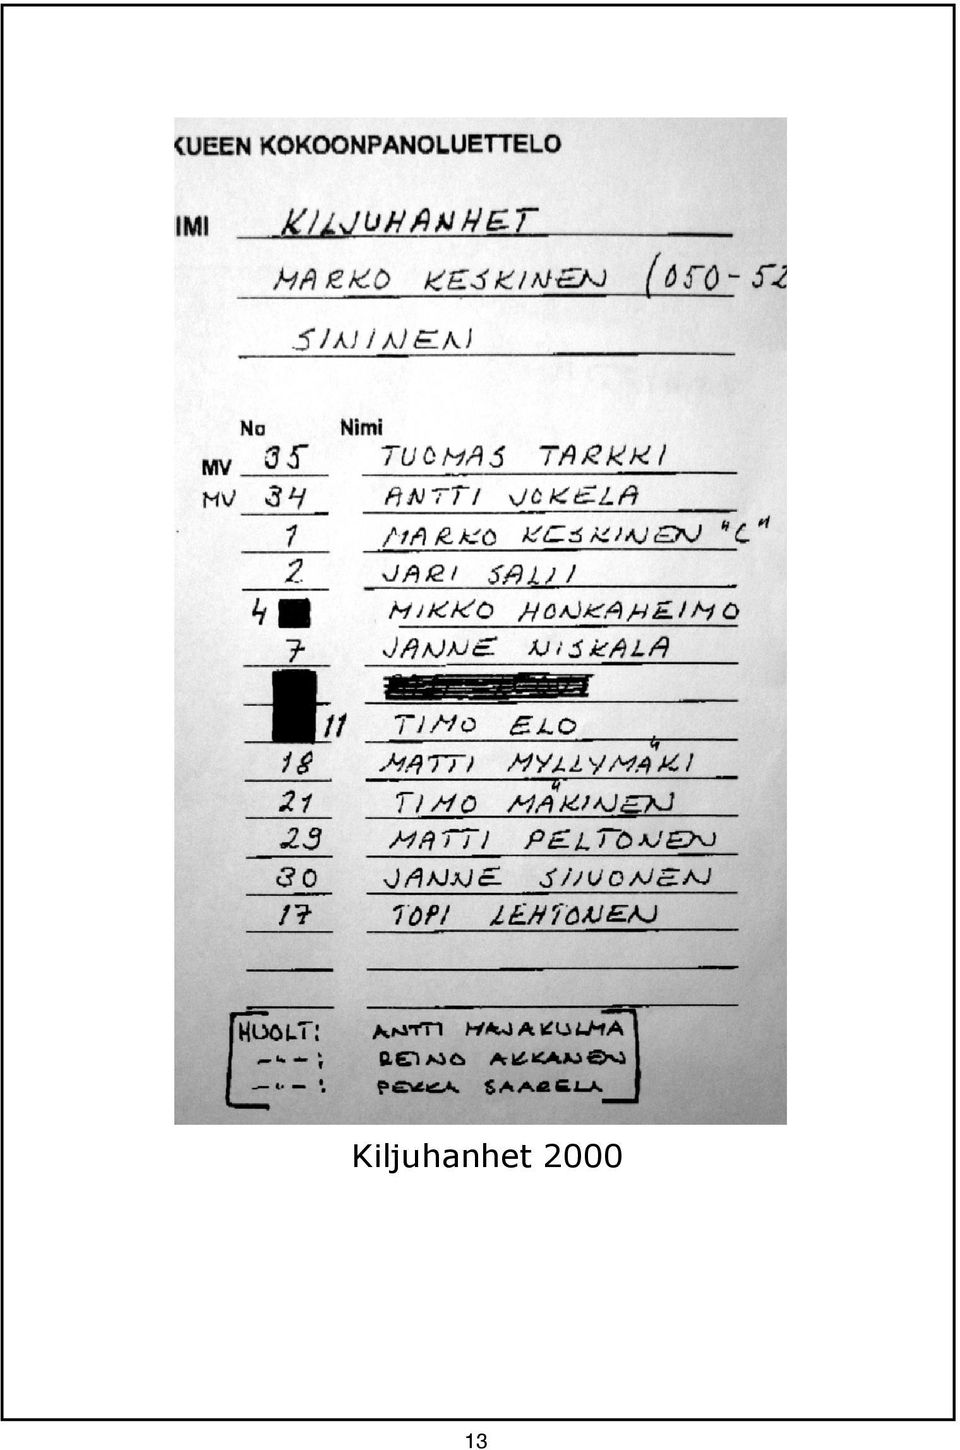 KUEEN KOKOONPANOLUETTELO
IMI KILJUHANHET
MARKO KESKINEN (050-52
SININEN
No Nimi
MV 35 TUOMAS TARKKI
MV 34 ANTTI JOKELA
1 MARKO KESKINEN "C"
2 JARI SALII
4 MIKKO HONKAHEIMO
7 JANNE NISKALA
11 TIMO ELO
18 MATTI MYLLYMÄKI
21 TIMO MÄKINEN
29 MATTI PELTONEN
30 JANNE SIIVONEN
17 TOPI LEHTONEN
HUOLT: ANTTI MAJAKULMA
-"-: REINO AKKANEN
-"-: PEKKA SAARELA
Kiljuhanhet 2000
13